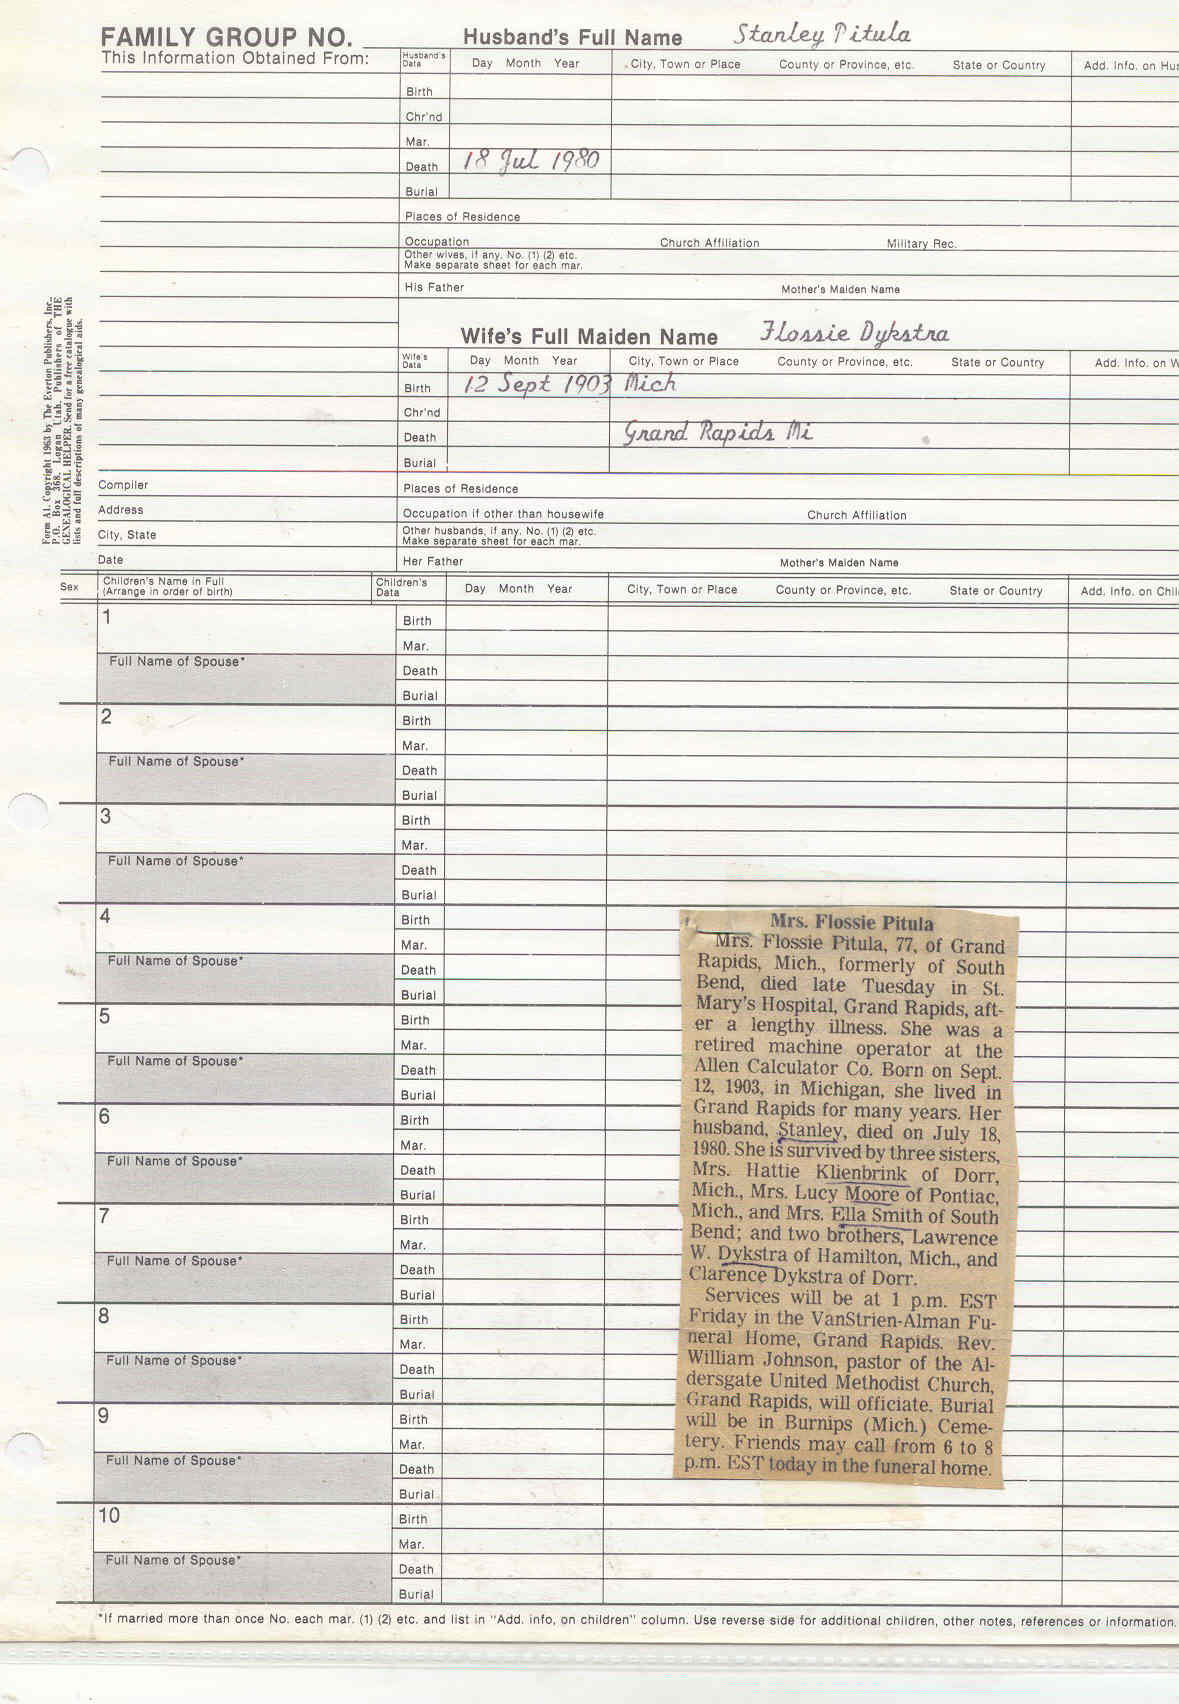 FAMILY GROUP NO. Husband's Full Name Stanley Pitula
This Information Obtained From: Husband's Data Day Month Year City, Town or Place County or Province, etc. State or Country Add. Info. on Hus
Birth
Chr'nd
Mar.
Death 18 Jul 1980
Burial
Places of Residence
Occupation Church Affiliation Military Rec.
Other wives, if any. No. (1) (2) etc.
Make separate sheet for each mar.
His Father Mother's Maiden Name
Wife's Full Maiden Name Flossie Dykstra
Wife's Data Day Month Year City, Town or Place County or Province, etc. State or Country Add. Info. on W
Birth 12 Sept 1903 Mich
Chr'nd
Death Grand Rapids Mi
Burial
Compiler Places of Residence
Address Occupation if other than housewife Church Affiliation
City, State Other husbands, if any. No. (1) (2) etc.
Make separate sheet for each mar.
Date Her Father Mother's Maiden Name
Form A1. Copyright 1963 by The Everton Publishers, Inc.,
P.O. Box 368, Logan Utah. Publishers of THE
GENEALOGICAL HELPER. Send for a free catalogue with
lists and full descriptions of many genealogical aids.
Sex Children's Name in Full (Arrange in order of birth) Children's Data Day Month Year City, Town or Place County or Province, etc. State or Country Add. Info. on Chil
1 Birth
Mar.
Full Name of Spouse* Death
Burial
2 Birth
Mar.
Full Name of Spouse* Death
Burial
3 Birth
Mar.
Full Name of Spouse* Death
Burial
4 Birth
Mar.
Full Name of Spouse* Death
Burial
5 Birth
Mar.
Full Name of Spouse* Death
Burial
6 Birth
Mar.
Full Name of Spouse* Death
Burial
7 Birth
Mar.
Full Name of Spouse* Death
Burial
8 Birth
Mar.
Full Name of Spouse* Death
Burial
9 Birth
Mar.
Full Name of Spouse* Death
Burial
10 Birth
Mar.
Full Name of Spouse* Death
Burial
Mrs. Flossie Pitula
Mrs. Flossie Pitula, 77, of Grand
Rapids, Mich., formerly of South
Bend, died late Tuesday in St.
Mary's Hospital, Grand Rapids, aft-
er a lengthy illness. She was a
retired machine operator at the
Allen Calculator Co. Born on Sept.
12, 1903, in Michigan, she lived in
Grand Rapids for many years. Her
husband, Stanley, died on July 18,
1980. She is survived by three sisters,
Mrs. Hattie Klienbrink of Dorr,
Mich., Mrs. Lucy Moore of Pontiac,
Mich., and Mrs. Ella Smith of South
Bend; and two brothers, Lawrence
W. Dykstra of Hamilton, Mich., and
Clarence Dykstra of Dorr.
Services will be at 1 p.m. EST
Friday in the VanStrien-Alman Fu-
neral Home, Grand Rapids. Rev.
William Johnson, pastor of the Al-
dersgate United Methodist Church,
Grand Rapids, will officiate. Burial
will be in Burnips (Mich.) Ceme-
tery. Friends may call from 6 to 8
p.m. EST today in the funeral home.
*If married more than once No. each mar. (1) (2) etc. and list in "Add. info, on children" column. Use reverse side for additional children, other notes, references or information.